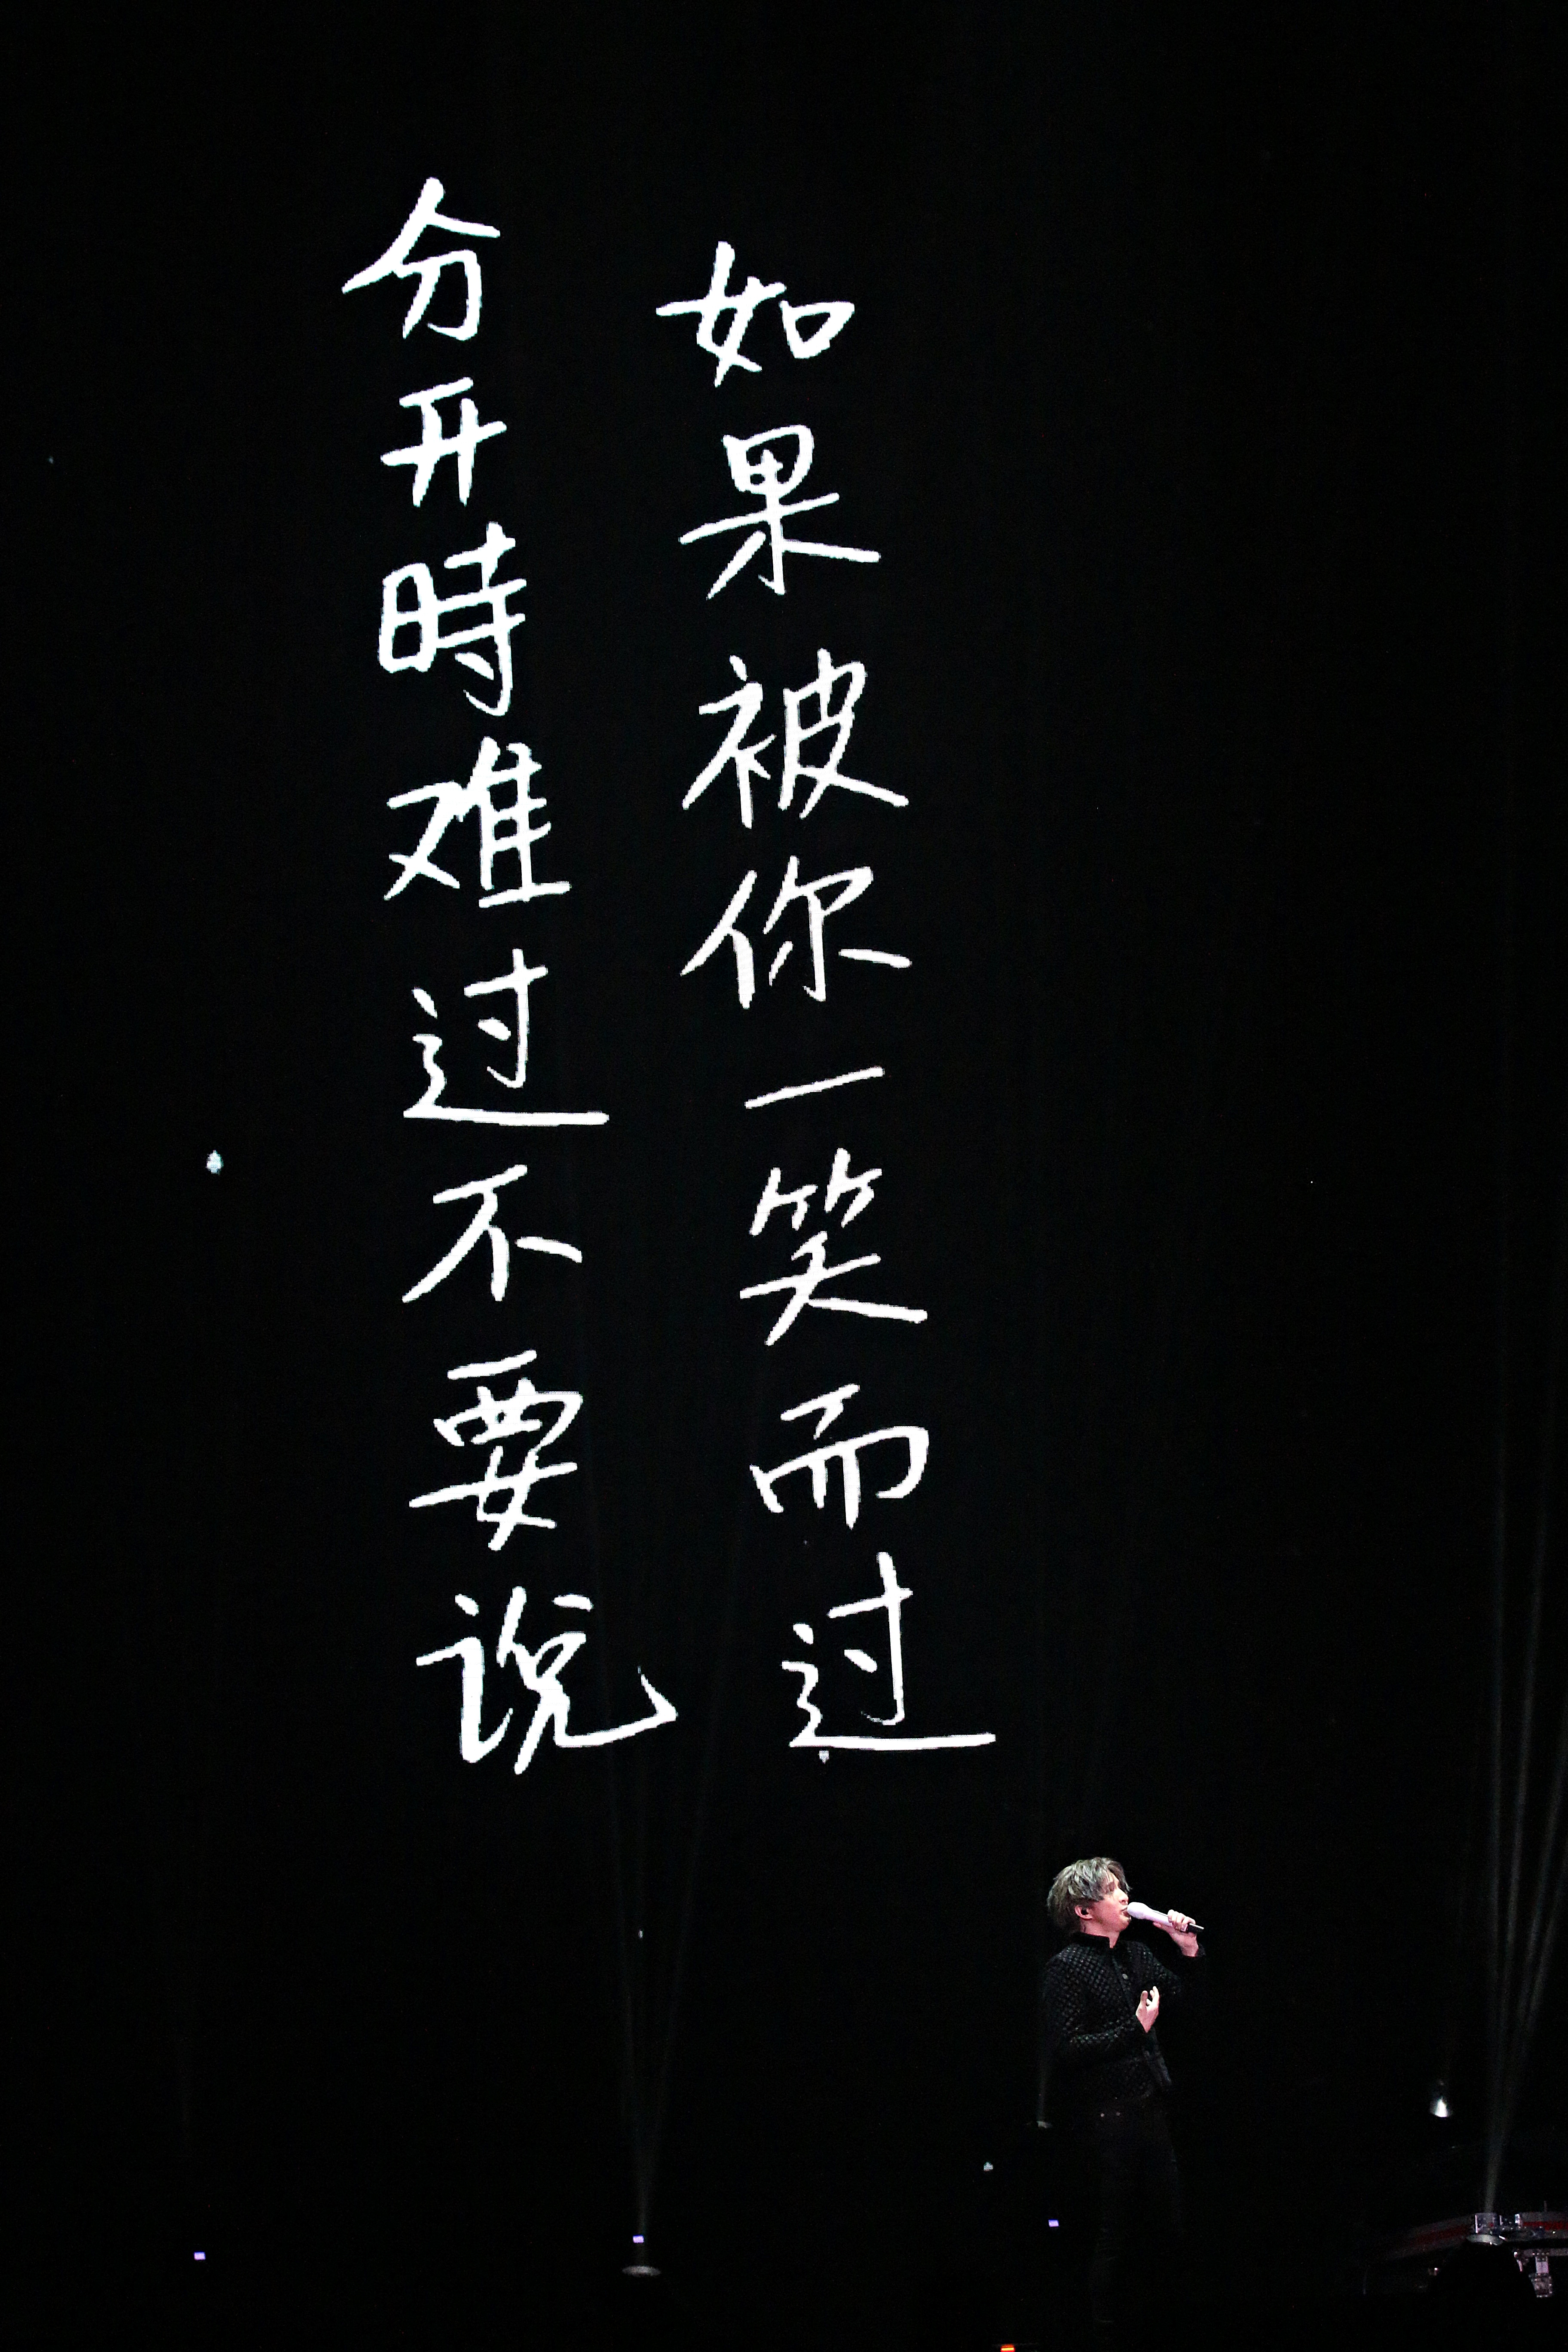 如果被你一笑而过
分开時难过不要说